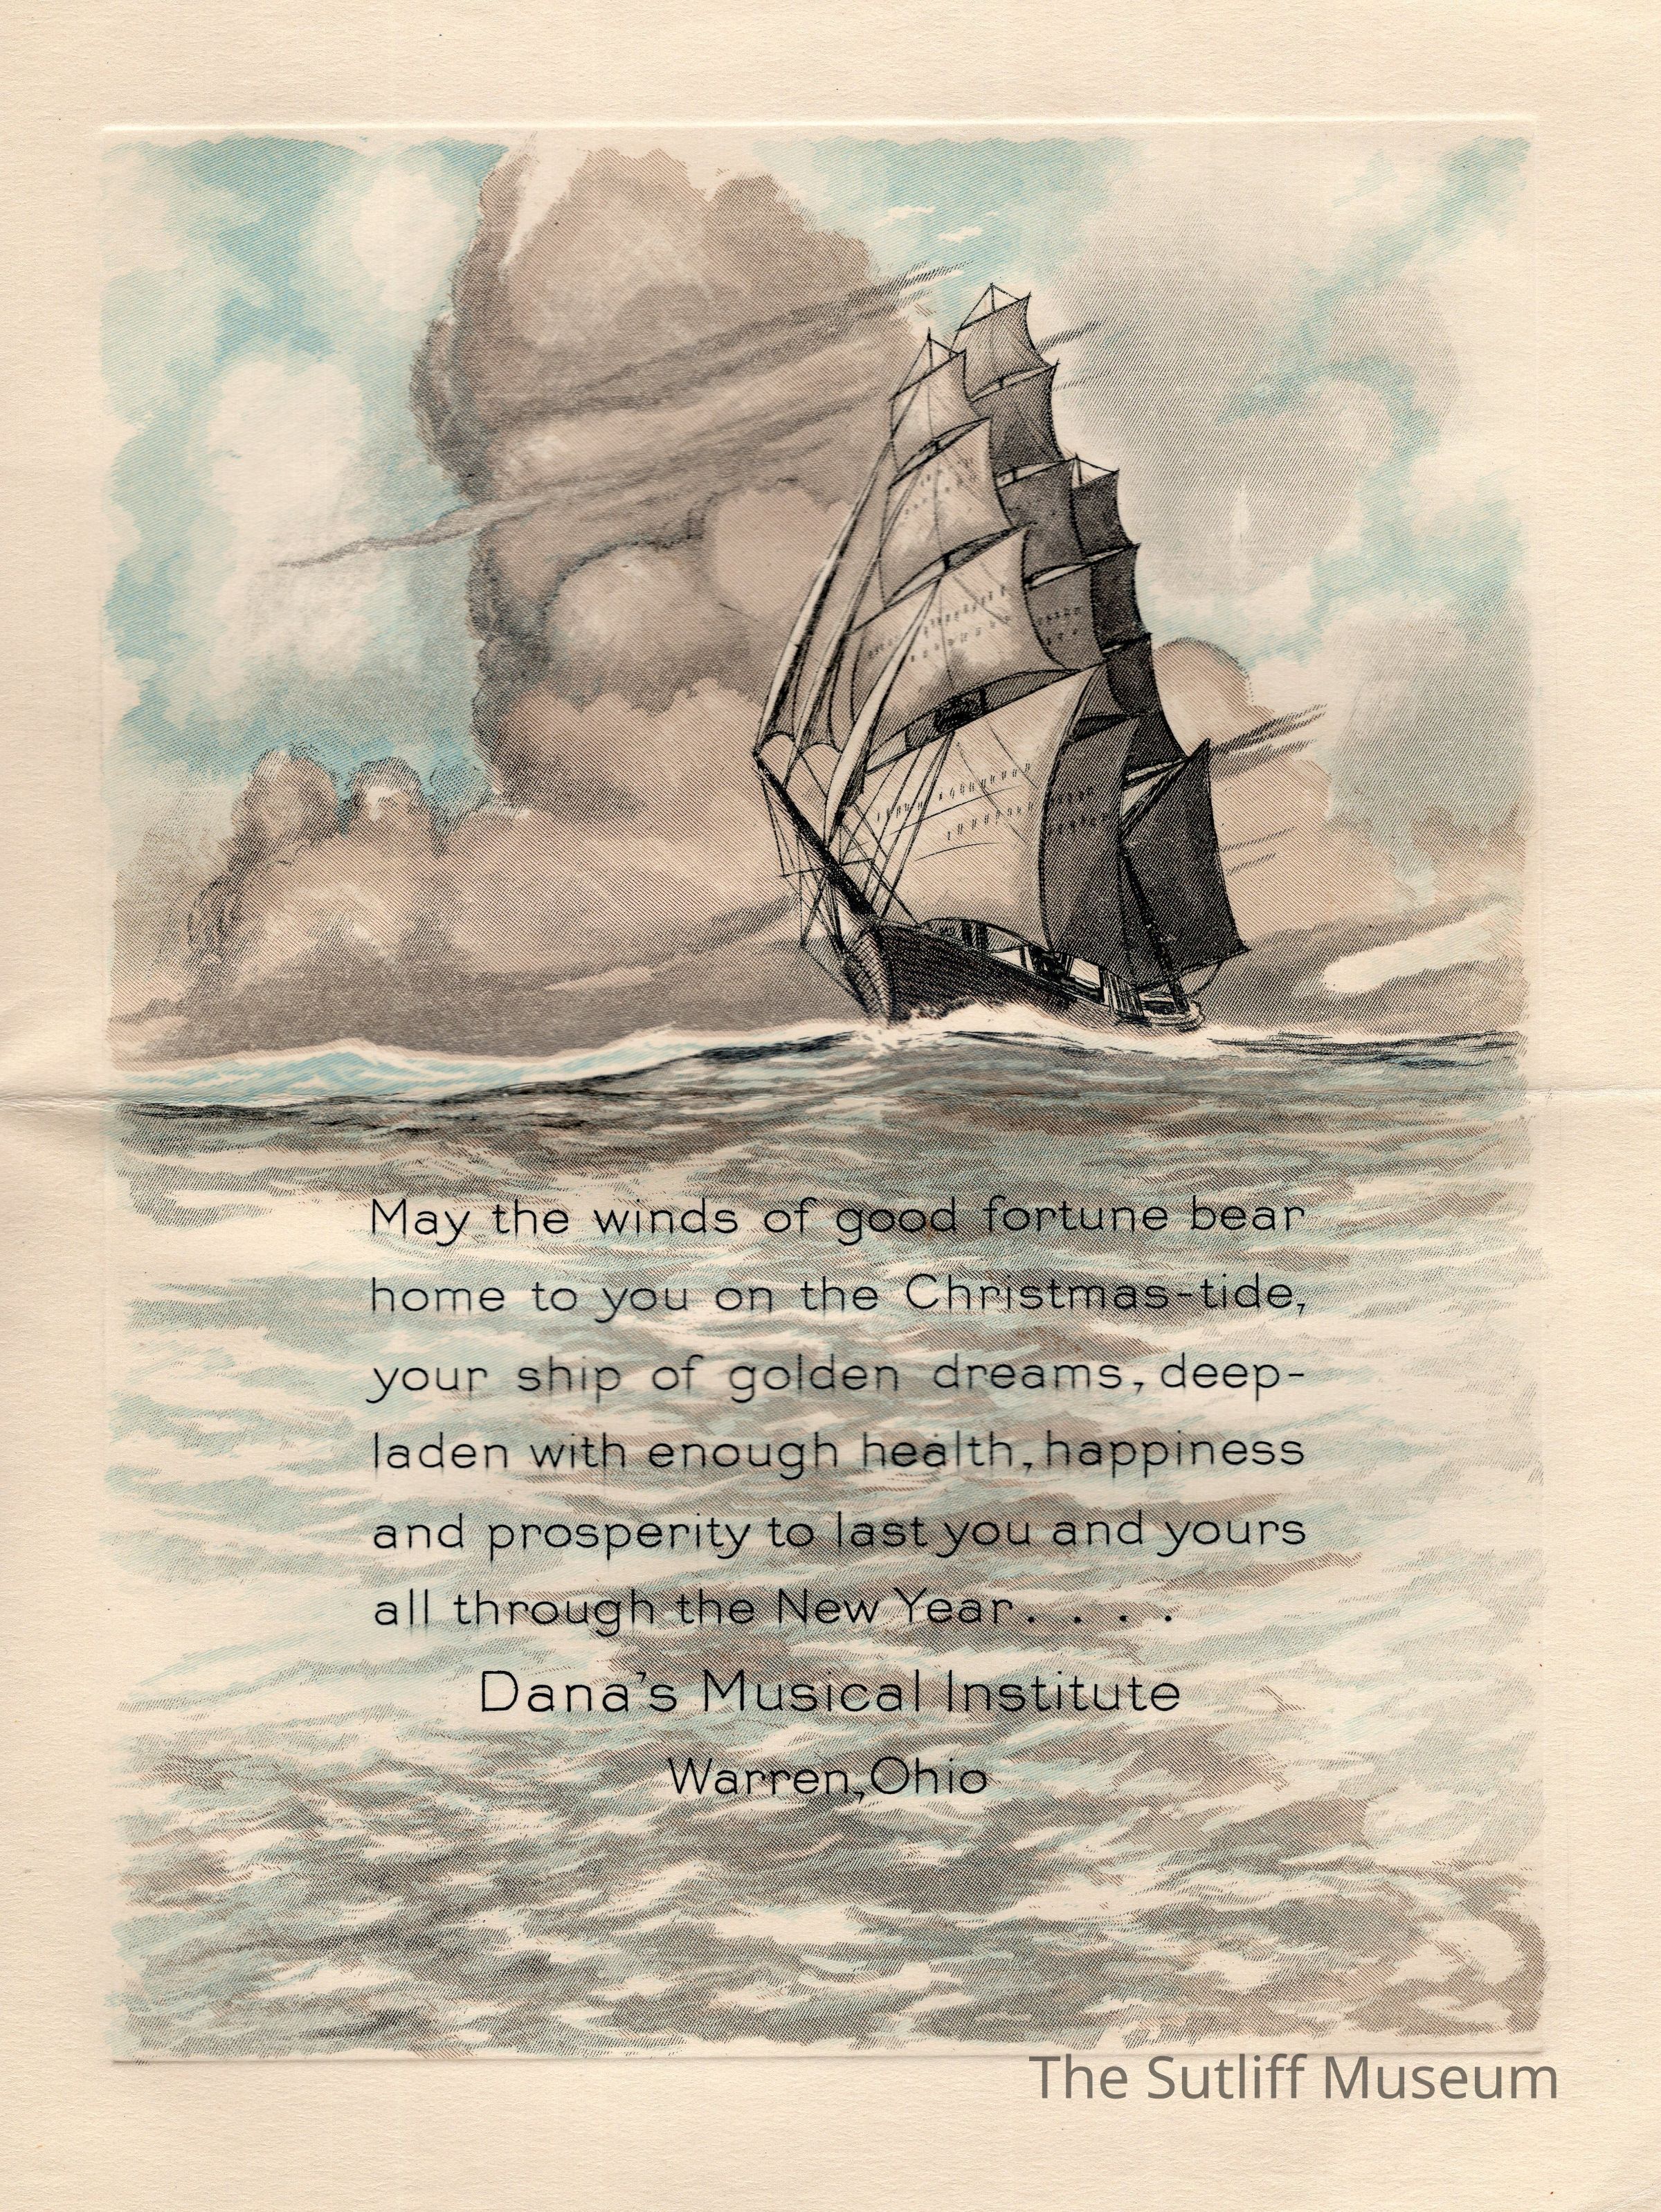 May the winds of good fortune bear
home to you on the Christmas-tide,
your ship of golden dreams, deep-
laden with enough health, happiness
and prosperity to last you and yours
all through the New Year. . . .
Dana's Musical Institute
Warren, Ohio
The Sutliff Museum